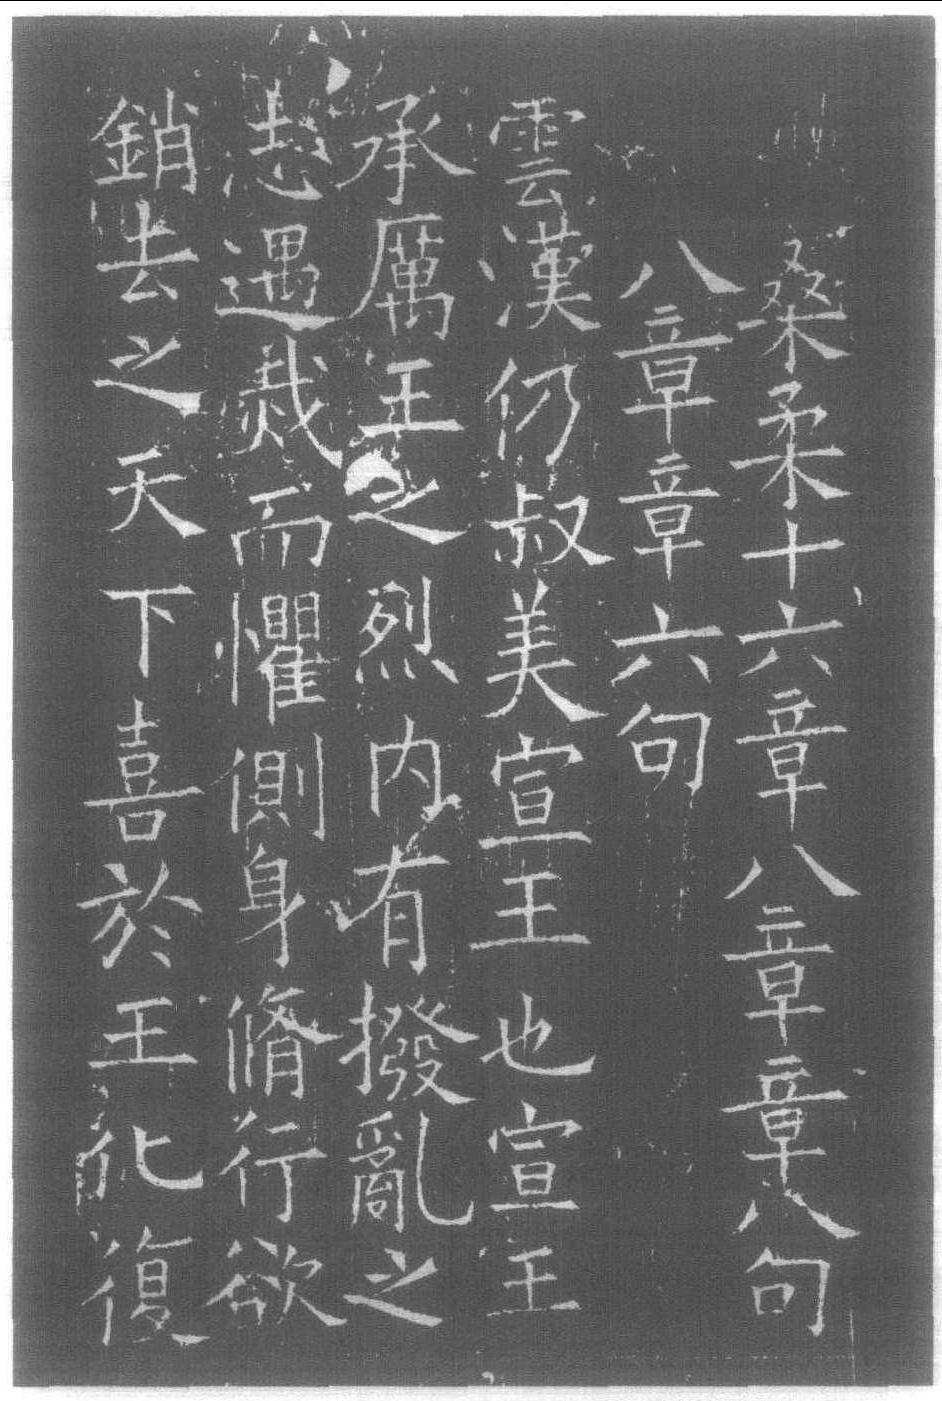 桑柔十六章八章章八句
八章章六句
雲漢仍叔美宣王也宣王
承厲王之烈内有撥亂之
志遇烖而懼側身脩行欲
銷去之天下喜於王化復